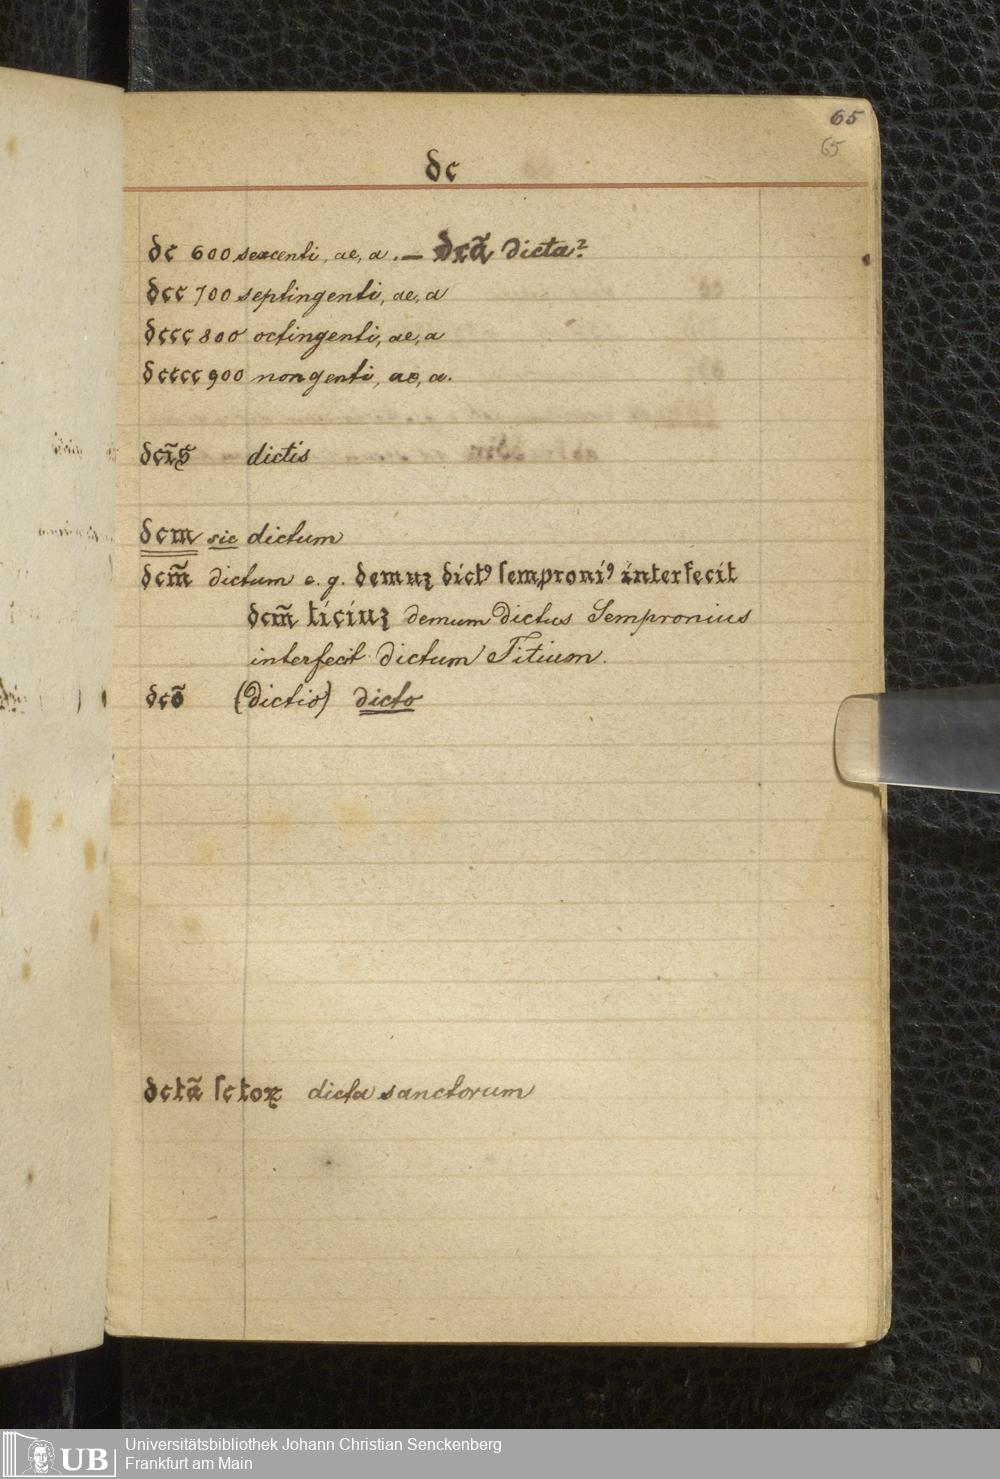 65
65
dc
dc 600 sexcenti, ae, a. — dcã dicta?
dcc 700 septingenti, ae, a
dccc 800 octingenti, ae, a
dcccc 900 nongenti, ae, a.
dictis
dcm sic dictum
dcm̃ dictum e. g. demuꝫ dictꝰ ſemproniꝰ interfecit
dcm̃ ticiuꝫ demum dictus Sempronius
interfecit dictum Titium.
dcõ (dictio) dicto
dctã ſctoꝝ dicta sanctorum
UB
Universitätsbibliothek Johann Christian Senckenberg
Frankfurt am Main